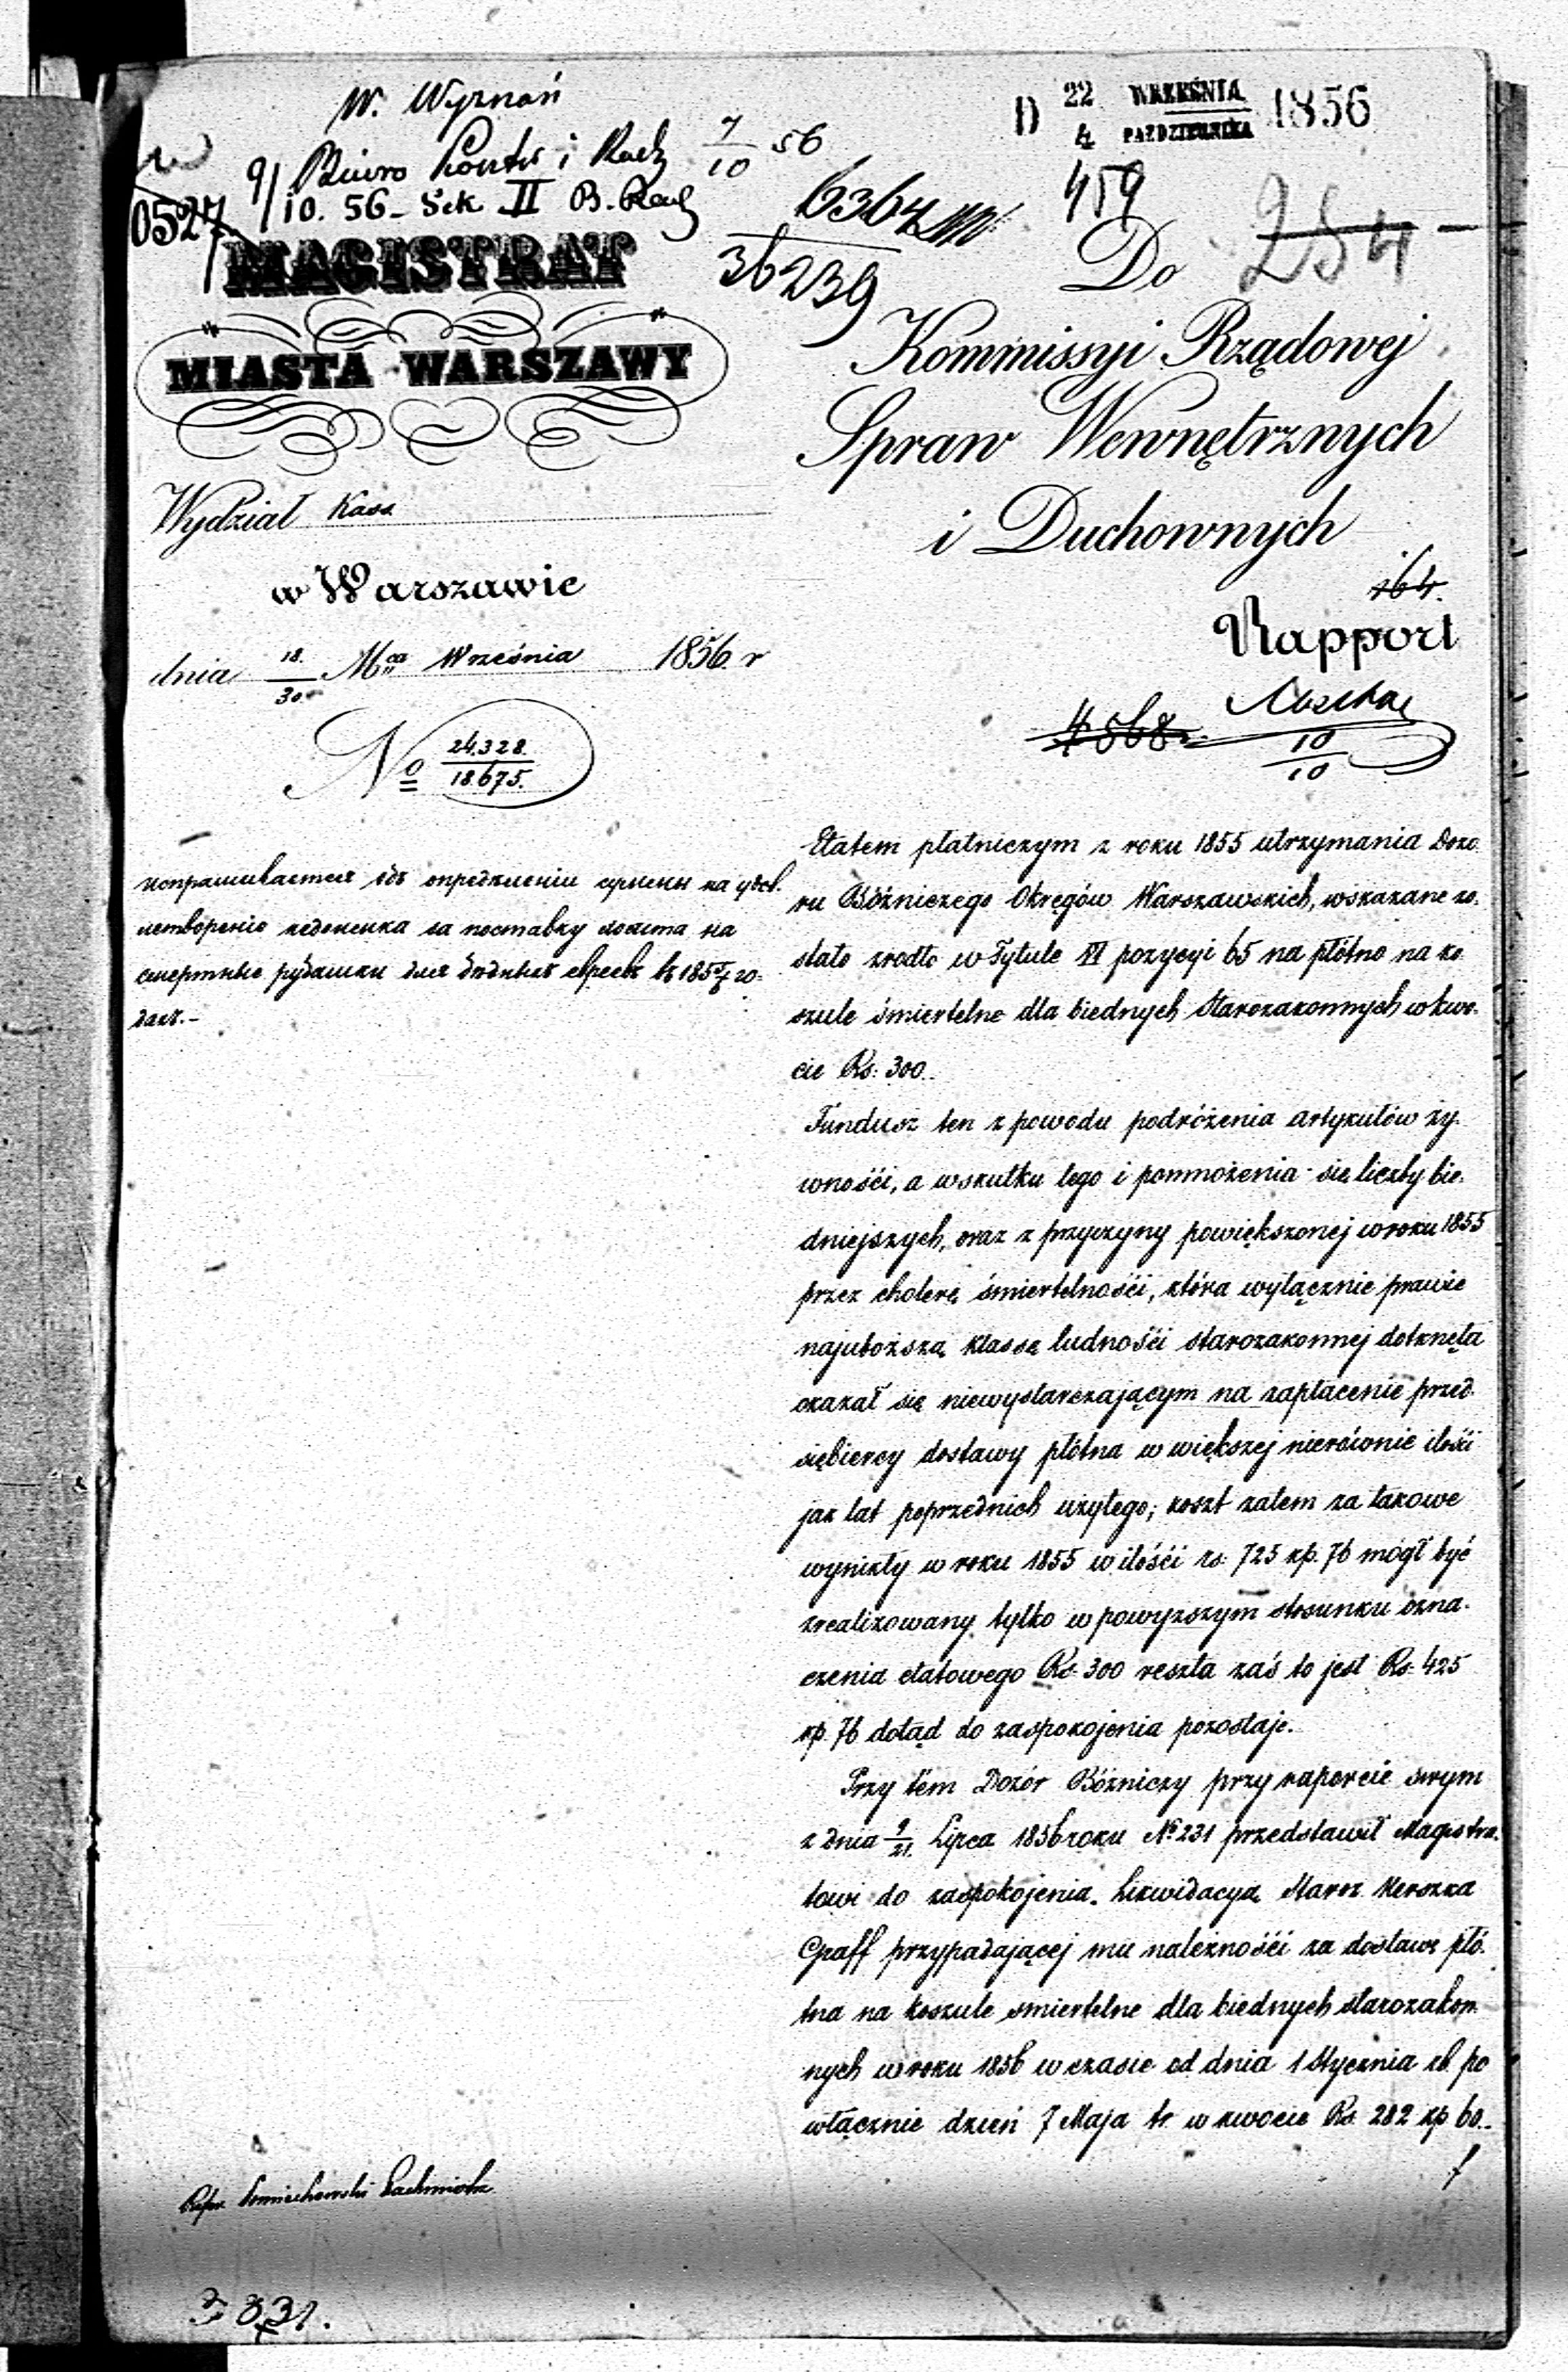 W. Wyznań
9/ Biuro Kontr i Rach 7/10 56
10. 56 - Sek II B. Rach
0527
D 22/4 WRZEŚNIA/PAŹDZIERNIKA 1856
6364
36239
459
254
MAGISTRAT
MIASTA WARSZAWY
Wydział Kass
w Warszawie
dnia 18/30 Mca Września 1856 r
No 24.328./18.675.
Do
Kommissyi Rządowej
Spraw Wewnętrznych
i Duchownych
164.
Rapport
4568
10/10
испрашивается объ опредѣленіи суммы на удов.
летвореніе за поставку холста на
смертные рубашки для бѣдныхъ евреевъ въ 185 го-
дахъ.-
Etatem płatniczym z roku 1855 utrzymania Dozo
ru Bóżniczego Okręgów Warszawskich, wskazane zo.
stało zrodło w Tytule VI pozycyi 65 na płótno na ko
szule śmiertelne dla biednych Starozakonnych w kwo.
cie Rs: 300.
Fundusz ten z powodu podróżenia artykułów ży.
wności, a wskutku tego i pomnożenia się liczby bie.
dniejszych, oraz z przyczyny powiększonej w roku 1855
przez cholerę śmiertelności, która wyłącznie prawie
najuboższą klassę ludności starozakonnej dotknęła
okazał się niewystarczającym na zapłacenie przed
siębiercy dostawy płótna w większej nierównie ilości
jak lat poprzednich użytego; koszt zatem za takowe
wynikły w roku 1855 w ilości rs. 725 kp. 76 mógł być
zrealizowany tylko w powyższym stosunku ozna.
czenia etatowego Rs. 300 reszta zaś to jest Rs. 425
kp. 76 dotąd do zaspokojenia pozostaje.
Przy tém Dozór Bóżniczy przy raporcie swym
z dnia 9/21. Lipca 1856 roku No 231 przedstawił Magistra.
towi do zaspokojenia Likwidacyą Staroz Herszka
Graff przypadającej mu należności za dostawę płó.
tna na koszule smiertelne dla biednych starozakon
nych w roku 1856 w czasie od dnia 1 Stycznia rb. po
włącznie dzień 7 Maja tr. w kwocie Rs. 282 kp 60.
3831.